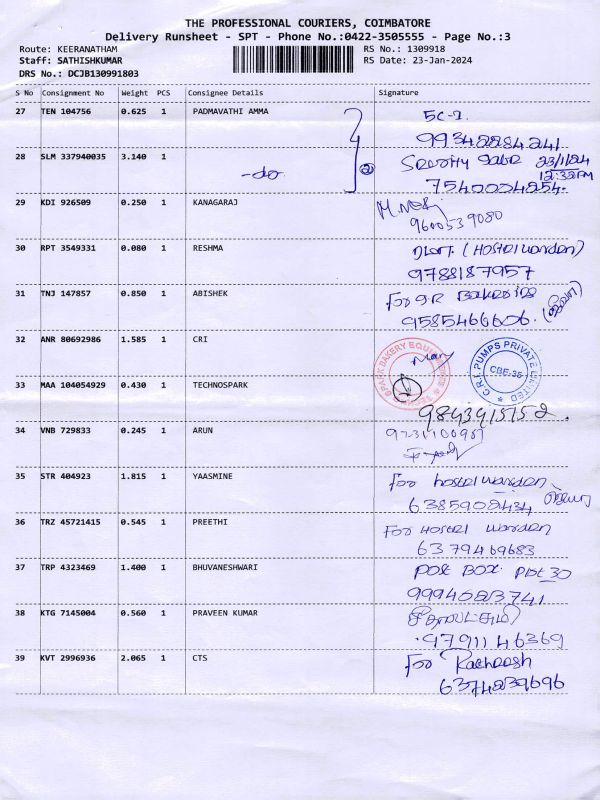 THE PROFESSIONAL COURIERS, COIMBATORE
Delivery Runsheet - SPT - Phone No.:0422-3505555 - Page No.:3
Route: KEERANATHAM RS No.: 1309918
Staff: SATHISHKUMAR RS Date: 23-Jan-2024
DRS No.: DCJB130991803
S No Consignment No Weight PCS Consignee Details Signature
27 TEN 104756 0.625 1 PADMAVATHI AMMA
99342284241
28 SLM 337940035 3.140 1 -do- 2 23/1/24
12:32PM
29 KDI 926509 0.250 1 KANAGARAJ
9600539080
30 RPT 3549331 0.080 1 RESHMA (Hostel warden)
9788187957
31 TNJ 147857 0.850 1 ABISHEK For Bakeries
9585466606.
32 ANR 80692986 1.585 1 CRI
C.R.I. PUMPS PRIVATE LIMITED
CBE-35
33 MAA 104054929 0.430 1 TECHNOSPARK
BAKERY EQUIPMENTS
34 VNB 729833 0.245 1 ARUN
35 STR 404923 1.815 1 YAASMINE for hostel warden
6385902434
36 TRZ 45721415 0.545 1 PREETHI For Hostel warden
6379469683
37 TRP 4323469 1.400 1 BHUVANESHWARI Post Box
38 KTG 7145004 0.560 1 PRAVEEN KUMAR
9791146369
39 KVT 2996936 2.065 1 CTS for
6374239696